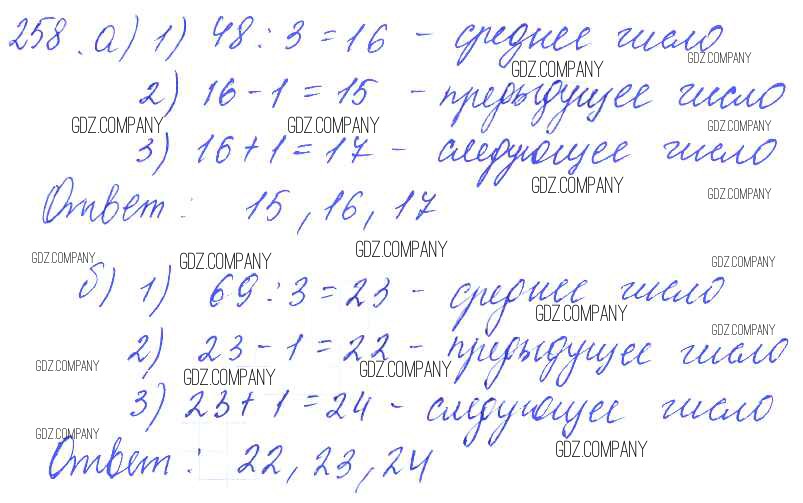 258. а) 1) 48 : 3 = 16 - среднее число
GDZ.COMPANY GDZ.COMPANY
2) 16 - 1 = 15 - предыдущее число
GDZ.COMPANY GDZ.COMPANY GDZ.COMPANY
3) 16 + 1 = 17 - следующее число
GDZ.COMPANY GDZ.COMPANY
Ответ: 15, 16, 17
GDZ.COMPANY GDZ.COMPANY GDZ.COMPANY GDZ.COMPANY
б) 1) 69 : 3 = 23 - среднее число
GDZ.COMPANY GDZ.COMPANY
2) 23 - 1 = 22 - предыдущее число
GDZ.COMPANY GDZ.COMPANY GDZ.COMPANY
3) 23 + 1 = 24 - следующее число
GDZ.COMPANY GDZ.COMPANY
Ответ: 22, 23, 24